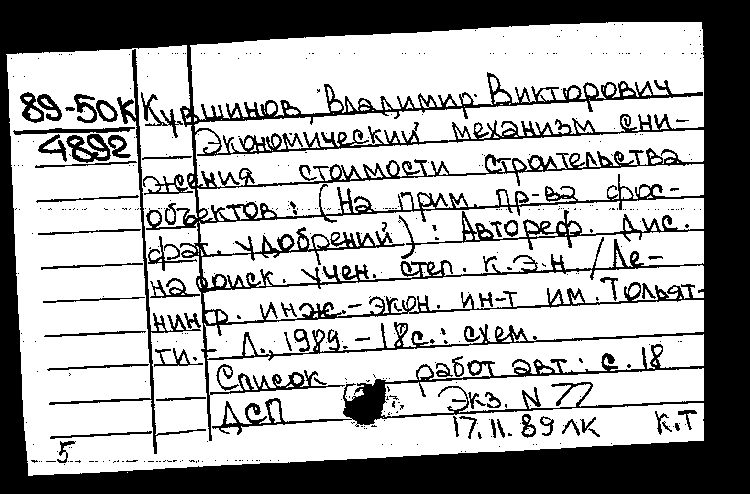 89-50К
4892
Кувшинов, Владимир Викторович
Экономический механизм сни-
жения стоимости строительства
объектов: (На прим. пр-ва фос-
фат. удобрений): Автореф. дис.
на соиск. учен. степ. к.э.н. / Ле-
нингр. инж.-экон. ин-т им. Тольят-
ти. - Л., 1989. - 18с.: схем.
Список работ авт.: с. 18
ДСП Экз. N 77
17.11.89 ЛК К.Т
5